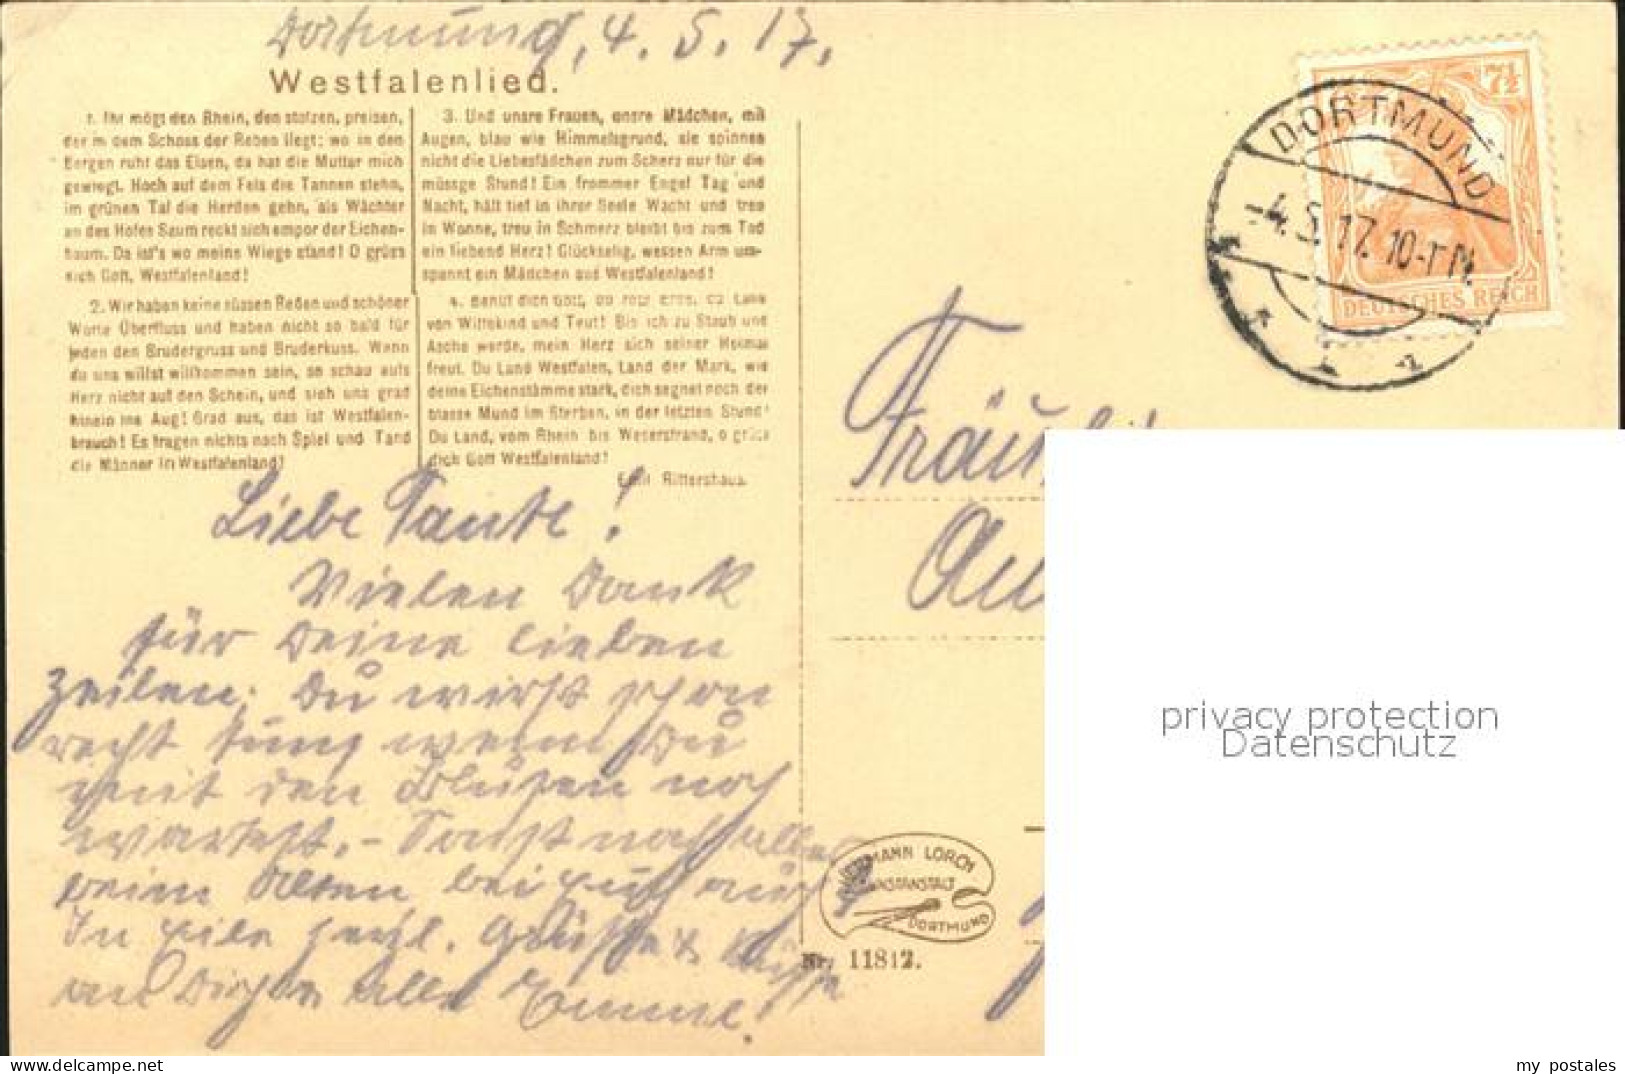 Dortmund, 4. 5. 17.
Westfalenlied.
1. Ihr mögt den Rhein, den stolzen, preisen,
der in dem Schoss der Reben liegt; wo in den
Bergen ruht das Eisen, da hat die Mutter mich
gewiegt. Hoch auf dem Fels die Tannen stehn,
im grünen Tal die Herden gehn, als Wächter
an des Hofes Saum reckt sich empor der Eichen-
baum. Da ist's wo meine Wiege stand! O grüss
dich Gott, Westfalenland!
2. Wir haben keine süssen Reden und schöner
Worte Überfluss und haben nicht so bald für
jeden den Brudergruss und Bruderkuss. Wenn
du uns willst willkommen sein, so schau aufs
Herz nicht auf den Schein, und sieh uns grad
hinein ins Aug! Grad aus, das ist Westfalen-
brauch! Es fragen nichts nach Spiel und Tand
die Männer in Westfalenland!
3. Und unsre Frauen, unsre Mädchen, mit
Augen, blau wie Himmelsgrund, sie spinnen
nicht die Liebesfädchen zum Scherz nur für die
müssge Stund! Ein frommer Engel Tag und
Nacht, hält tief in ihrer Seele Wacht und treu
in Wonne, treu in Schmerz bleibt bis zum Tod
ein liebend Herz! Glückselig, wessen Arm um-
spannt ein Mädchen aus Westfalenland!
4. Behüt dich Gott, du rote Erde, du Land
von Wittekind und Teut! Bis ich zu Staub und
Asche werde, mein Herz sich seiner Heimat
freut. Du Land Westfalen, Land der Mark, wie
deine Eichenstämme stark, dich segnet noch der
blasse Mund im Sterben, in der letzten Stund!
Du Land, vom Rhein bis Weserstrand, o grüss
dich Gott Westfalenland!
Emil Rittershaus.
Liebe Tante!
Vielen Dank
für Deine lieben
Zeilen. Du wirst schon
recht wenn Du
mit den Blusen noch
wartest. – Sonst noch alles
beim Alten bei Euch auch?
In Eile herzl. Grüsse & Küsse
an Dich alle Emmi.
DORTMUND
-4.5.17.10-11N.
7½
DEUTSCHES REICH
Fräul
HERMANN LORCH
KUNSTANSTALT
DORTMUND
Nr. 11812.
privacy protection
Datenschutz
my postales
delcampe.net